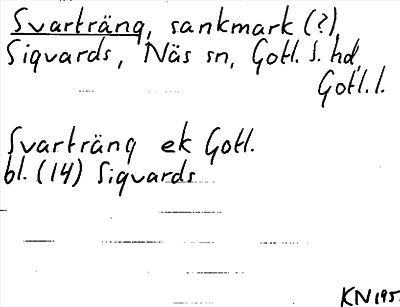 Svarträng, sankmark (?)
Sigvards, Näs sn, Gotl. S. hd,
Gotl. l.
Svarträng ek Gotl.
bl. (14) Sigvards
KN 195